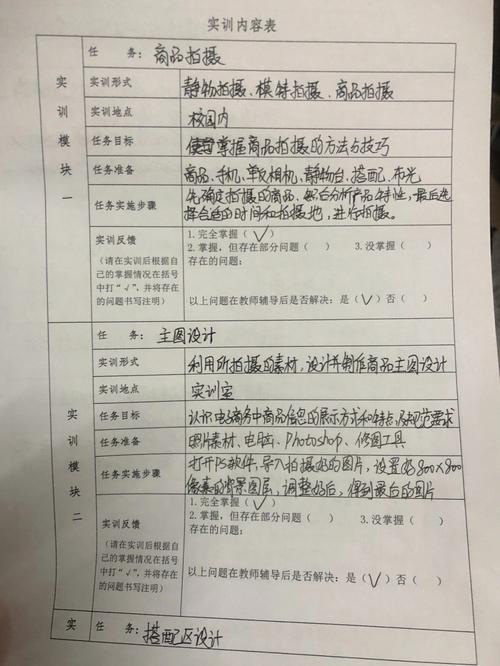 实训内容表
实训模块一
任 务：商品拍摄
实训形式 静物拍摄、模特拍摄、商品拍摄
实训地点 校园内
任务目标 使学掌握商品拍摄的方法与技巧
任务准备 商品、手机、单反相机、静物台、搭配、布光
任务实施步骤 先确定拍摄的商品、然后分析产品特性，最后选
择合适的时间和拍摄地，进行拍摄。
实训反馈
（请在实训后根据自己的掌握情况在括号中打“√”，并将存在的问题书写注明）
1.完全掌握（√）
2.掌握，但存在部分问题（ ） 3.没掌握（ ）
存在的问题：
以上问题在教师辅导后是否解决：是（√）否（ ）
实训模块二
任 务：主图设计
实训形式 利用所拍摄的素材，设计并制作商品主图设计
实训地点 实训室
任务目标 认识电商务中商品信息的展示方式和特点及规范要求
任务准备 照片素材、电脑、Photoshop、修图工具
任务实施步骤 打开PS软件，导入拍摄好的图片，设置好800×800
像素的背景图层，调整好后，得到最后的图片
实训反馈
（请在实训后根据自己的掌握情况在括号中打“√”，并将存在的问题书写注明）
1.完全掌握（√）
2.掌握，但存在部分问题（ ） 3.没掌握（ ）
存在的问题：
以上问题在教师辅导后是否解决：是（√）否（ ）
实 任 务：搭配区设计